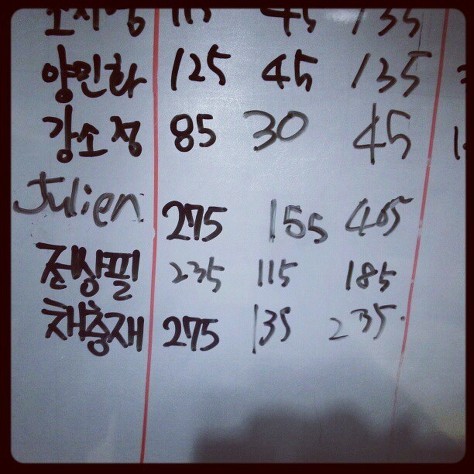 115 45 135
양민화 125 45 135
강소정 85 30 45
Julien 275 155 405
전상필 235 115 185
채충재 275 135 235